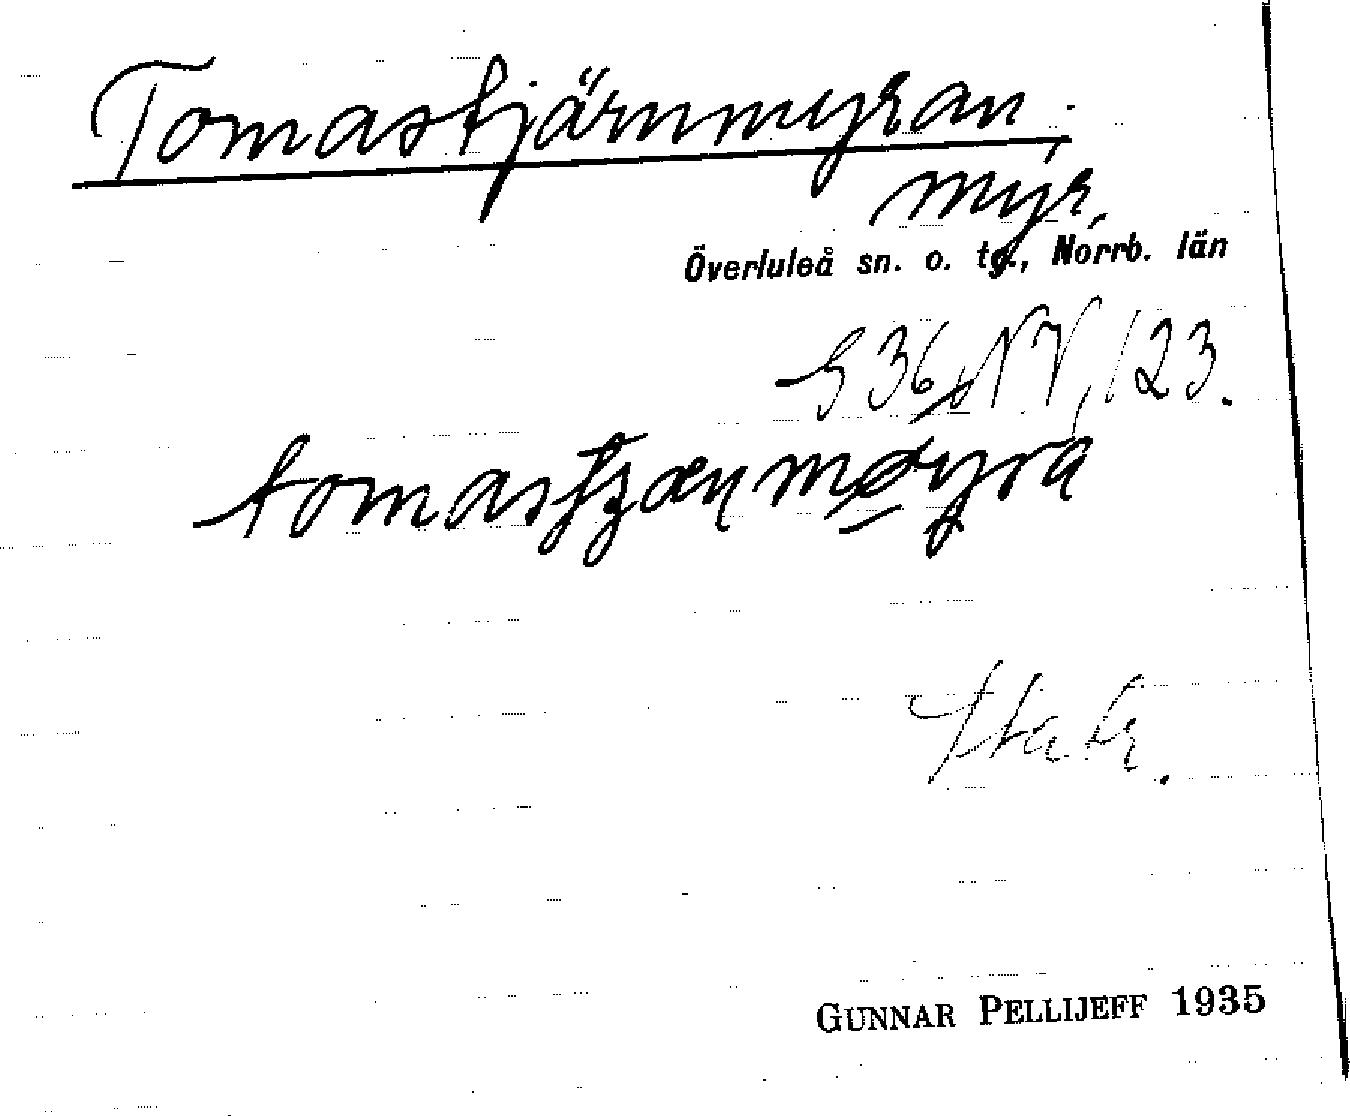 Tomastjärnmyran.
myr,
Överluleå sn. o. tg., Norrb. län
S 36 NV, 123.
GUNNAR PELLIJEFF 1935